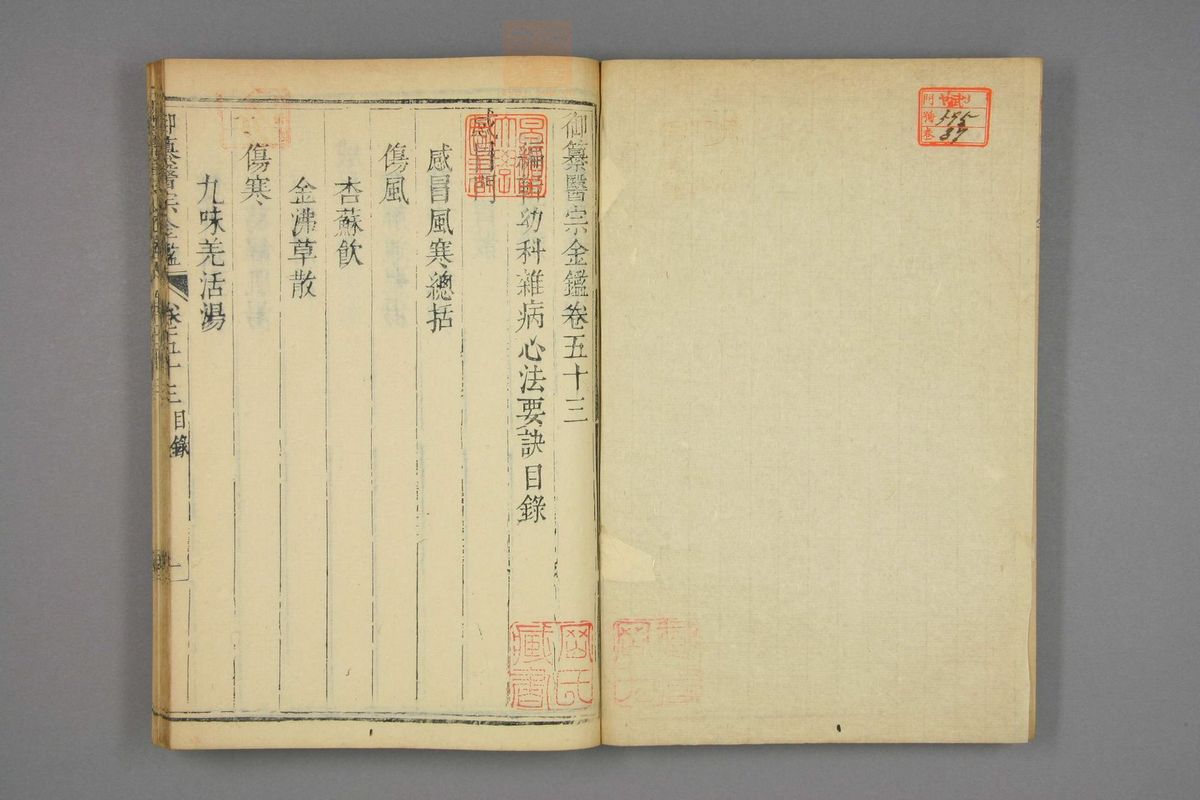 御纂醫宗金鑑卷五十三
編輯幼科雜病心法要訣目錄
感冒門
感冒風寒總括
傷風
杏蘇飲
金沸草散
傷寒
九味羌活湯
御纂醫宗金鑑 卷五十三 目錄 一
岡氏
藏書
395
87